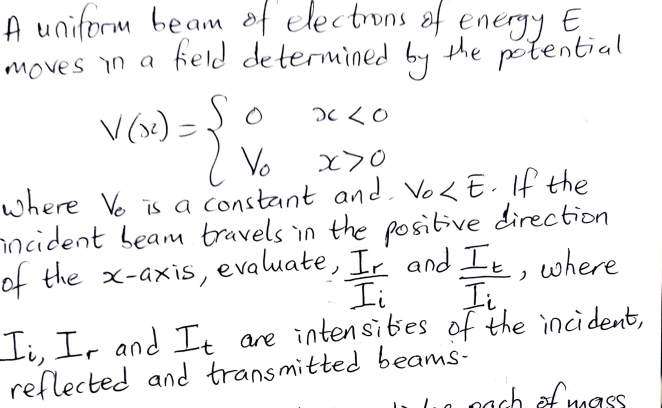 A uniform beam of electrons of energy E
moves in a field determined by the potential
V(x) = { 0 x < 0
V₀ x > 0
where V₀ is a constant and. V₀ < E. If the
incident beam travels in the positive direction
of the x-axis, evaluate, Ir/Ii and It/Ii, where
Ii, Ir and It are intensities of the incident,
reflected and transmitted beams.
each of mass